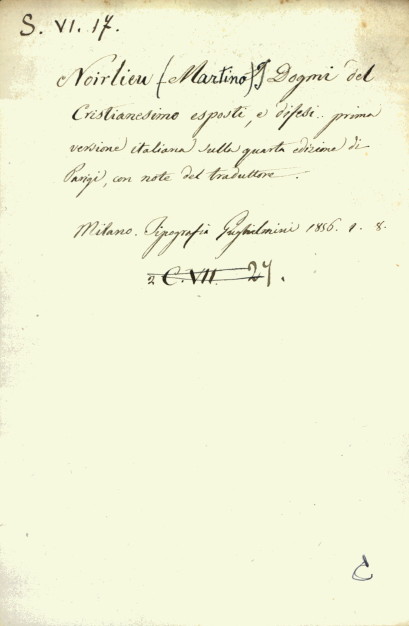 S. VI. 17.
Noirlieu (Martino) I Dogmi del
Cristianesimo esposti, e difesi. prima
versione italiana sulla quarta edizione di
Parigi, con note del traduttore.
Milano. Tipografia Guglielmini 1856. 1. 8.
2 C. VII. 27.
C